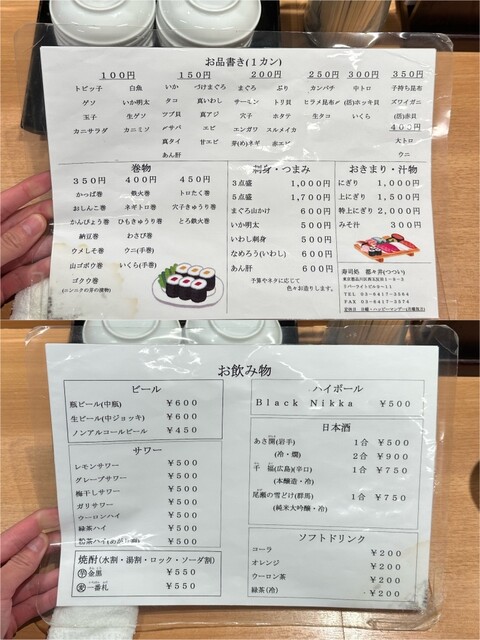 お品書き(1カン)
100円
トビッ子 白魚
ゲソ いか明太
玉子 生ゲソ
カニサラダ カニミソ
150円
いか づけまぐろ
タコ 真いわし
ツブ貝 真アジ
〆サバ エビ
真タイ 甘エビ
あん肝
200円
まぐろ ぶり
サーモン トリ貝
穴子 ホタテ
エンガワ スルメイカ
芽(め)ネギ 赤エビ
250円
カンパチ
ヒラメ昆布〆
生タコ
300円
中トロ
(活)ホッキ貝
いくら
350円
子持ち昆布
ズワイガニ
(活)赤貝
400円
大トロ
ウニ
巻物
350円 400円 450円
かっぱ巻 鉄火巻 トロたく巻
おしんこ巻 ネギトロ巻 穴子きゅうり巻
かんぴょう巻 ひもきゅうり巻 とろ鉄火巻
納豆巻 わさび巻
ウメしそ巻 ウニ(手巻)
山ゴボウ巻 いくら(手巻)
ゴクウ巻
(ニンニクの芽の漬物)
刺身・つまみ
3点盛 1,000円
5点盛 1,700円
まぐろ山かけ 600円
いか明太 500円
いわし刺身 500円
なめろう(いわし) 600円
あん肝 600円
予算やネタに応じて
色々お造りします。
おきまり・汁物
にぎり 1,000円
上にぎり 1,500円
特上にぎり 2,000円
みそ汁 300円
寿司処 都々井(つつい)
東京都品川区西五反田1-9-3
リバーライトビルB-11
TEL 03-6417-3564
FAX 03-6417-3574
定休日 日曜・ハッピーマンデー(月曜祝日)
お飲み物
ビール
瓶ビール(中瓶) ￥600
生ビール(中ジョッキ) ￥600
ノンアルコールビール ￥450
サワー
レモンサワー ￥500
グレープサワー ￥500
梅干しサワー ￥500
ガリサワー ￥500
ウーロンハイ ￥500
緑茶ハイ ￥500
￥500
焼酎(水割・湯割・ロック・ソーダ割)
㊫金黒 ￥550
㊫一番札 ￥550
ハイボール
Black Nikka ￥500
日本酒
あさ開(岩手) 1合 ￥500
(冷・燗) 2合 ￥900
千福(広島)(辛口) 1合 ￥750
(本醸造・冷)
尾瀬の雪どけ(群馬) 1合 ￥750
(純米大吟醸・冷)
ソフトドリンク
コーラ ￥200
オレンジ ￥200
ウーロン茶 ￥200
緑茶(冷) ￥200